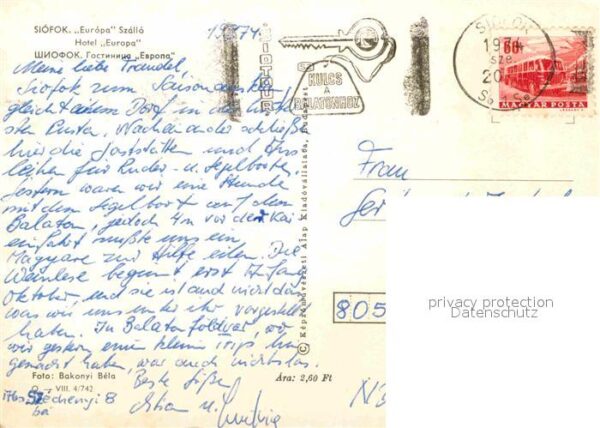 SIÓFOK. „Európa" Szálló
Hotel „Europa"
ШИОФОК. Гостиница „Европа"
SIÓFOK
KULCS
A
BALATONHOZ
SIÓFOK
197
sze
20
60f
MAGYAR POSTA
Meine liebe Traudel,
Siofok zum Saisonende
gleicht einem Dorf in der
ste Pusta. Nacheinander schließt
hier die Gaststätten und Aus
leihen für Ruder- u. Segelboote.
Gestern waren wir eine Stunde
mit dem Segelboot auf dem
Balaton, jedoch 4m vor der Kai
einfahrt mußte uns ein
Magyare zur Hilfe eilen. Die
Weinlese beginnt erst Anfang
Oktober, und sie ist auch nicht das
was wir uns unter ihr vorgestellt
haben. In Balatonföldvár, wo
wir gestern einen kleinen Trip hin
gemacht haben, war auch nichts los.
Beste Grüße
u.
Frau
805
privacy protection
Datenschutz
Foto: Bakonyi Béla
VIII. 4/742
Ára: 2,60 Ft
© Képzőművészeti Alap Kiadóvállalata, Budapest
Széchenyi 8